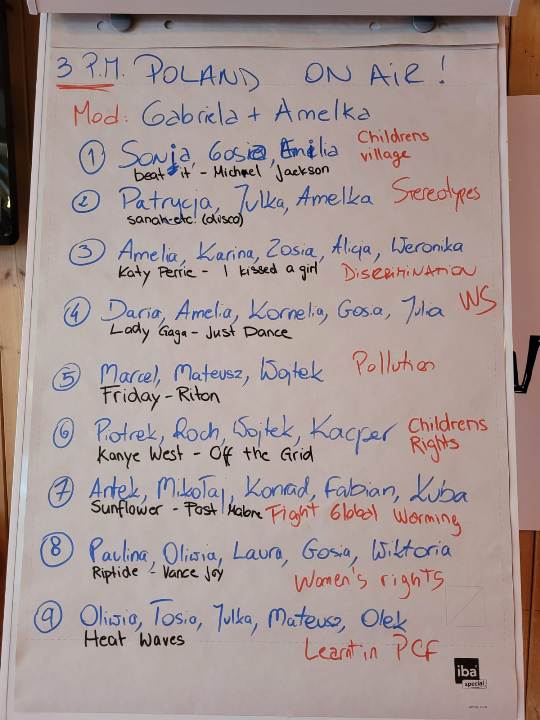 3 P.M. POLAND ON AIR!
Mod: Gabriela + Amelka
1 Sonja, Gosia, Emilia Childrens village
beat it - Michael Jackson
2 Patrycja, Julka, Amelka Stereotypes
sanah-etc! (disco)
3 Amelia, Karina, Zosia, Alicja, Weronika
Katy Perrie - I kissed a girl DISCRIMINATION
4 Daria, Amelia, Kornelia, Gosia, Julia WS
Lady Gaga - Just Dance
5 Marcel, Mateusz, Wojtek Pollution
Friday - Riton
6 Piotrek, Roch, Wojtek, Kacper Childrens Rights
Kanye West - Off the Grid
7 Antek, Mikołaj, Konrad, Fabian, Kuba
Sunflower - Post Malone Fight Global Worming
8 Paulina, Oliwia, Laura, Gosia, Wiktoria
Riptide - Vance Joy Women's rights
9 Oliwia, Tosia, Julka, Mateusz, Olek
Heat Waves
Learnt in PCF
iba
special